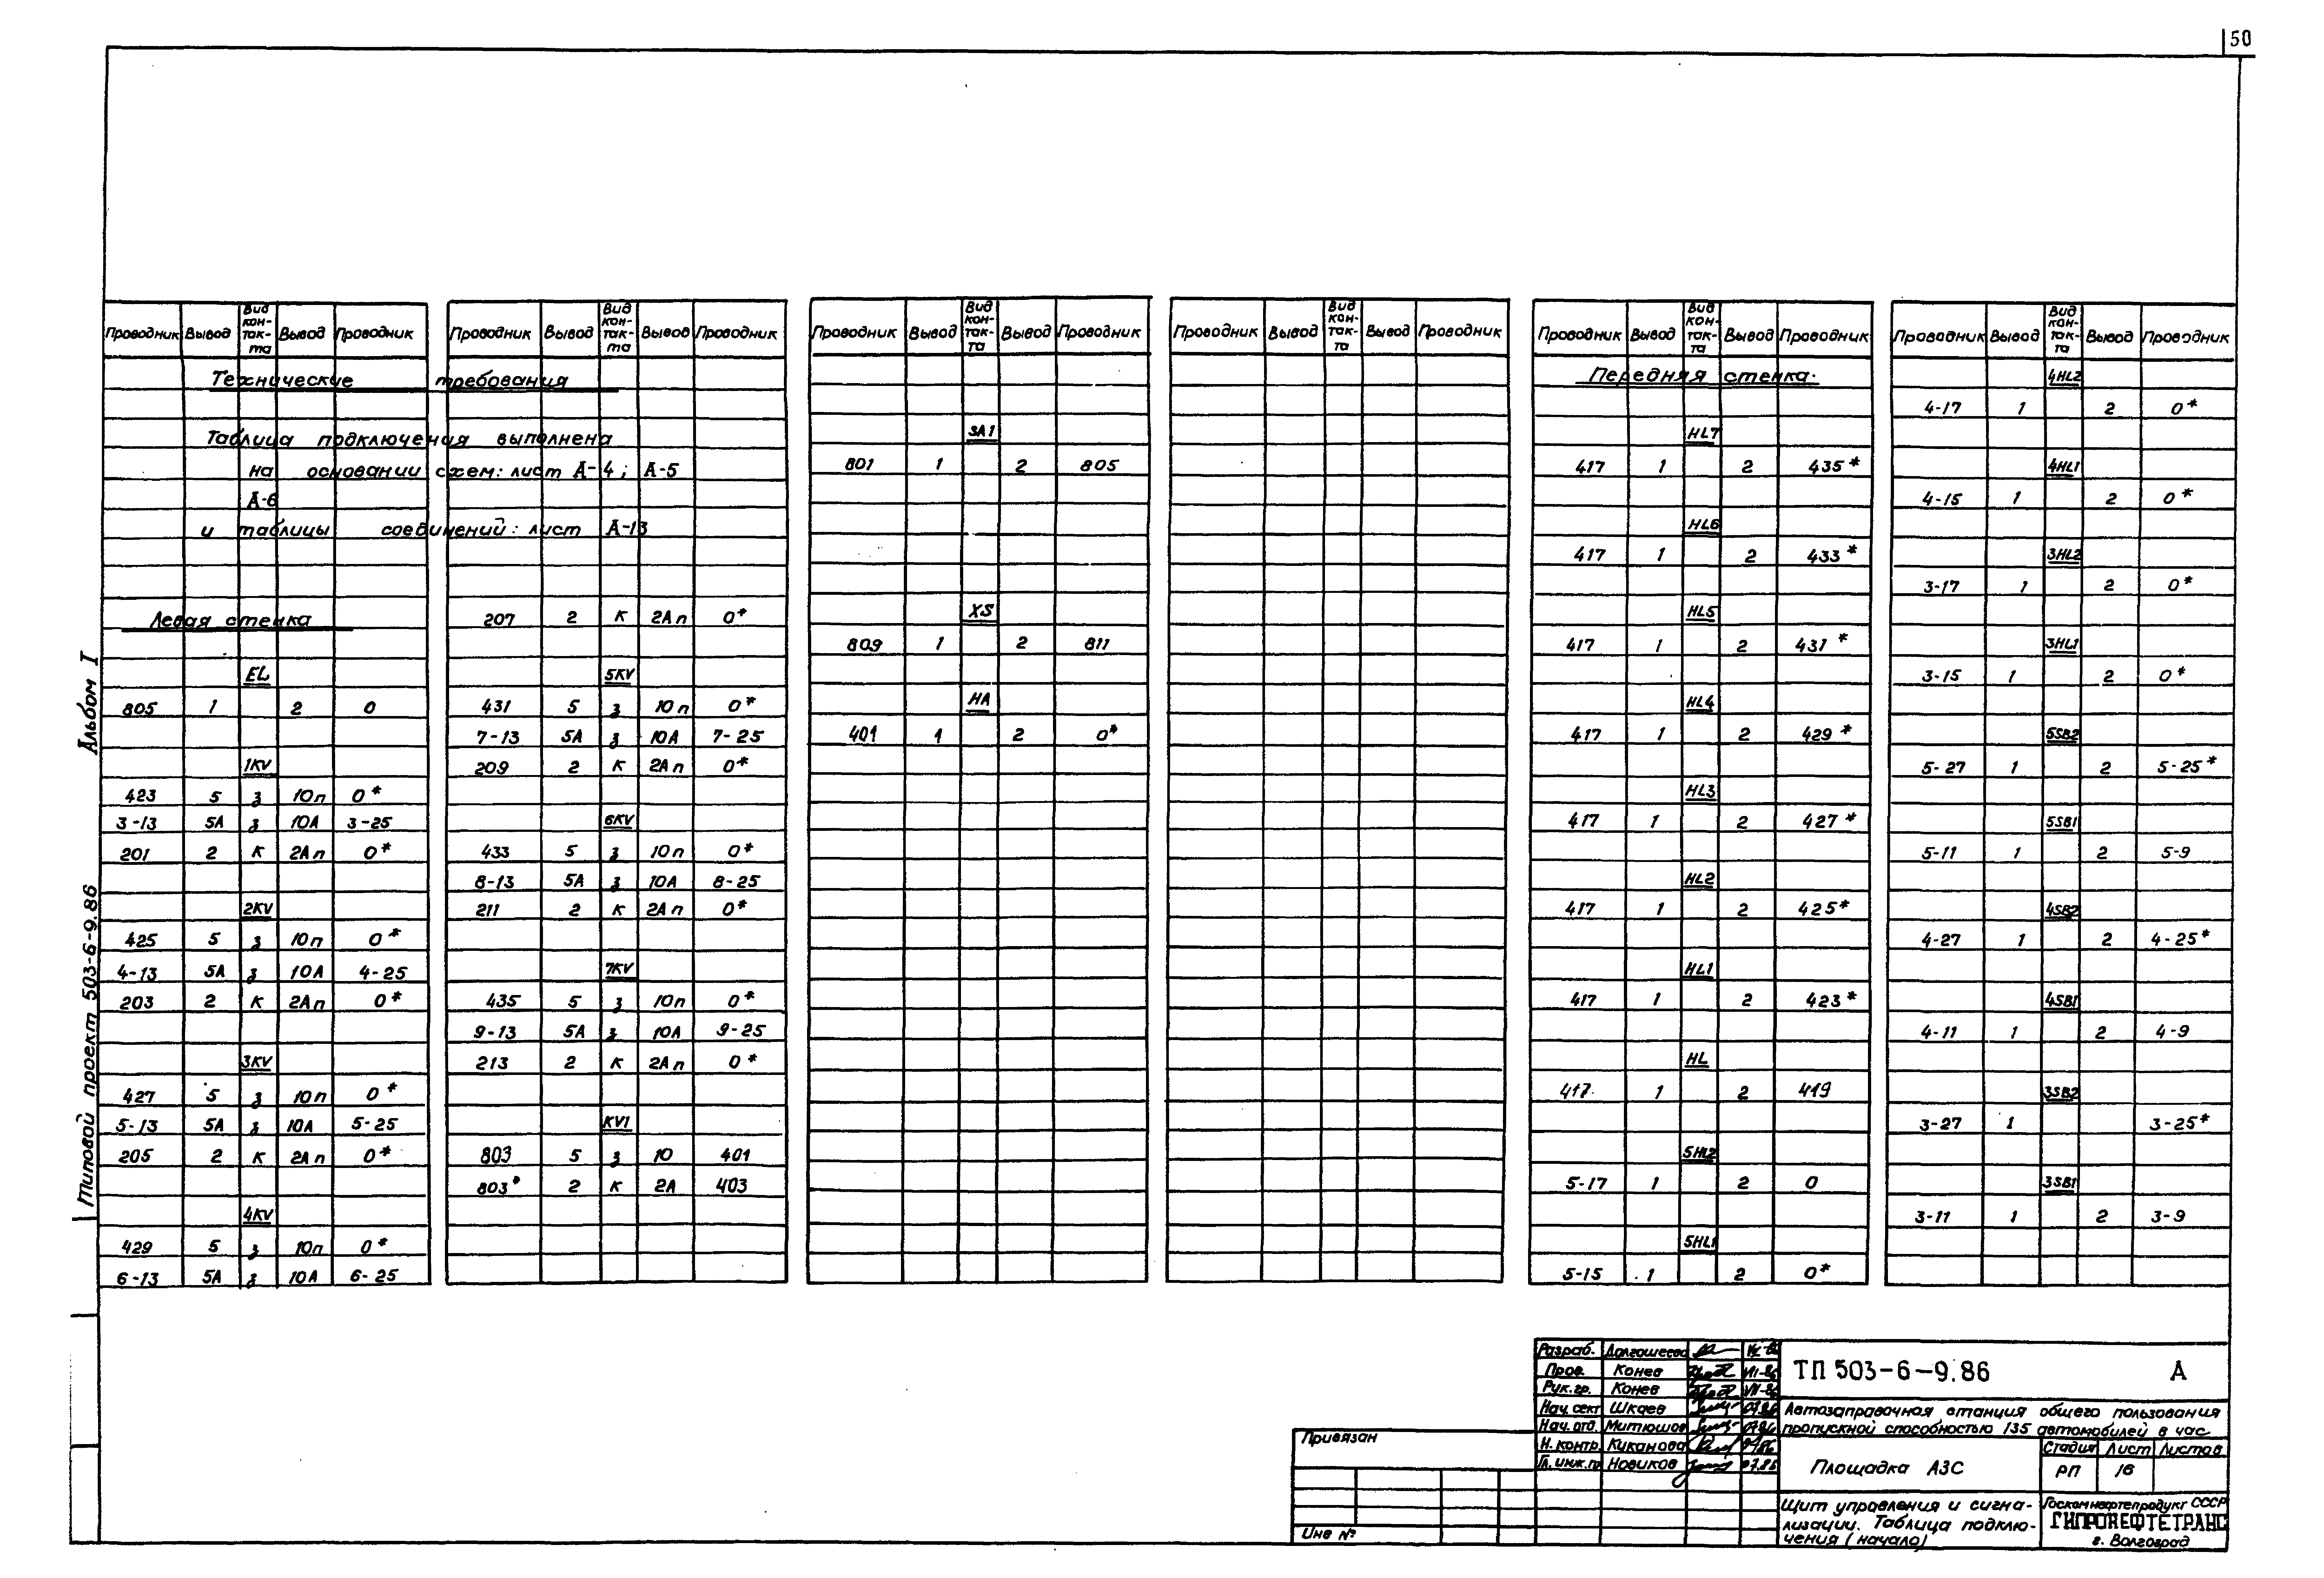 50
Проводник Вывод Вид кон-так-та Вывод Проводник
Технические требования
Таблица подключения выполнена
на основании схем: лист А-4; А-5
А-6
и таблицы соединений: лист А-13
Левая стенка
EL
805 1 2 0
1KV
423 5 з 10п 0*
3-13 5А з 10А 3-25
201 2 к 2Ап 0*
2KV
425 5 з 10п 0*
4-13 5А з 10А 4-25
203 2 к 2Ап 0*
3KV
427 5 з 10п 0*
5-13 5А з 10А 5-25
205 2 к 2Ап 0*
4KV
429 5 з 10п 0*
6-13 5А з 10А 6-25
Проводник Вывод Вид кон-так-та Вывод Проводник
207 2 к 2Ап 0*
5KV
431 5 з 10п 0*
7-13 5А з 10А 7-25
209 2 к 2Ап 0*
6KV
433 5 з 10п 0*
8-13 5А з 10А 8-25
211 2 к 2Ап 0*
7KV
435 5 з 10п 0*
9-13 5А з 10А 9-25
213 2 к 2Ап 0*
KV1
803 5 з 10 401
803* 2 к 2А 403
Проводник Вывод Вид кон-так-та Вывод Проводник
3A1
801 1 2 805
XS
809 1 2 811
HA
401 1 2 0*
Проводник Вывод Вид кон-так-та Вывод Проводник
Проводник Вывод Вид кон-так-та Вывод Проводник
Передняя стенка.
HL7
417 1 2 435*
HL6
417 1 2 433*
HL5
417 1 2 431*
HL4
417 1 2 429*
HL3
417 1 2 427*
HL2
417 1 2 425*
HL1
417 1 2 423*
HL
417 1 2 419
5HL2
5-17 1 2 0
5HL1
5-15 1 2 0*
Проводник Вывод Вид кон-так-та Вывод Проводник
4HL2
4-17 1 2 0*
4HL1
4-15 1 2 0*
3HL2
3-17 1 2 0*
3HL1
3-15 1 2 0*
5SB2
5-27 1 2 5-25*
5SB1
5-11 1 2 5-9
4SB2
4-27 1 2 4-25*
4SB1
4-11 1 2 4-9
3SB2
3-27 1 3-25*
3SB1
3-11 1 2 3-9
Типовой проект 503-6-9.86 Альбом I
Разраб. Долгошеева
Пров. Конев
Рук.гр. Конев
Нач.сект Шкаев
Нач.отд. Митюшов
Н.контр. Куканова
Гл.инж.пр Новиков
Привязан
Инв №
ТП 503-6-9.86 А
Автозаправочная станция общего пользования
пропускной способностью 135 автомобилей в час
Площадка АЗС
Стадия Лист Листов
РП 16
Щит управления и сигна-
лизации. Таблица подклю-
чения (начало)
Госкомнефтепродукт СССР
ГИПРОНЕФТЕТРАНС
г. Волгоград